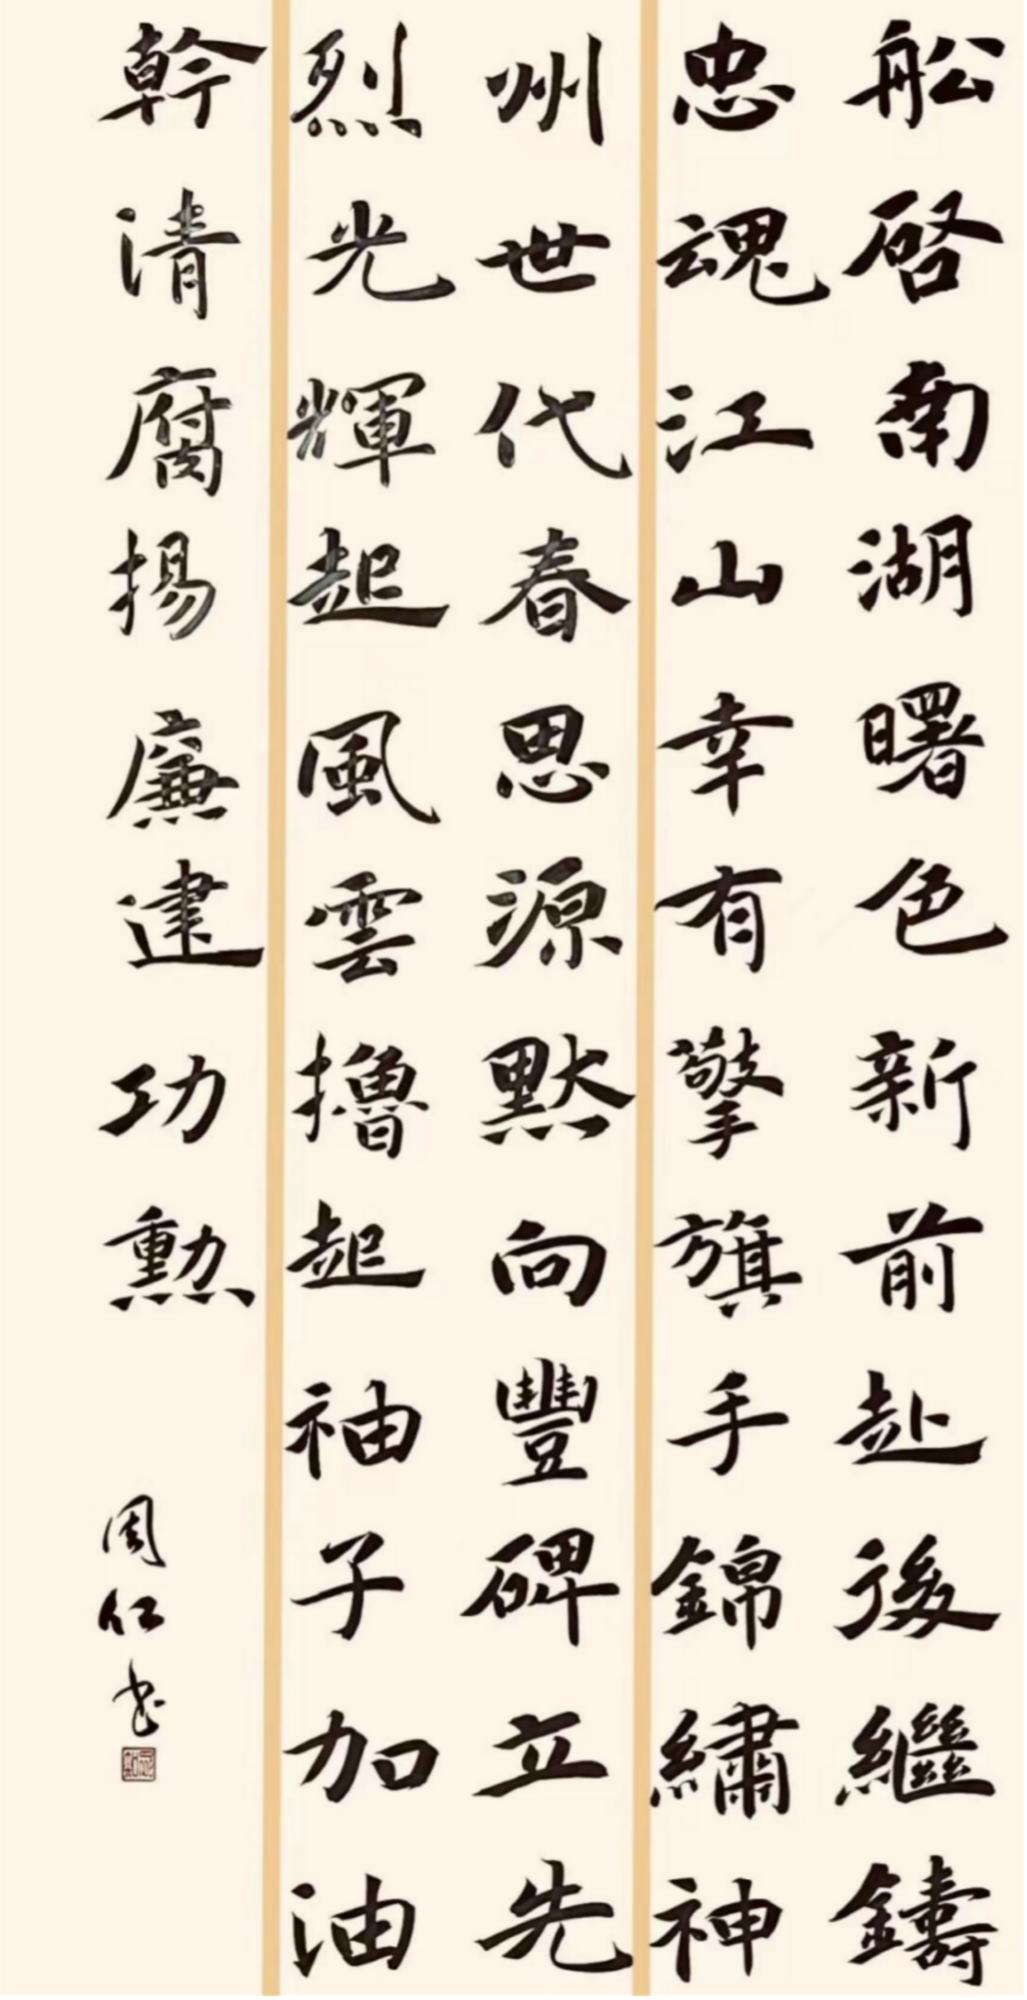 船啓南湖曙色新前赴後繼鑄
忠魂江山幸有擎旗手錦繡神
州世代春思源默向豐碑立先
烈光輝起風雲擼起袖子加油
幹清腐揚廉建功勲
周仁书